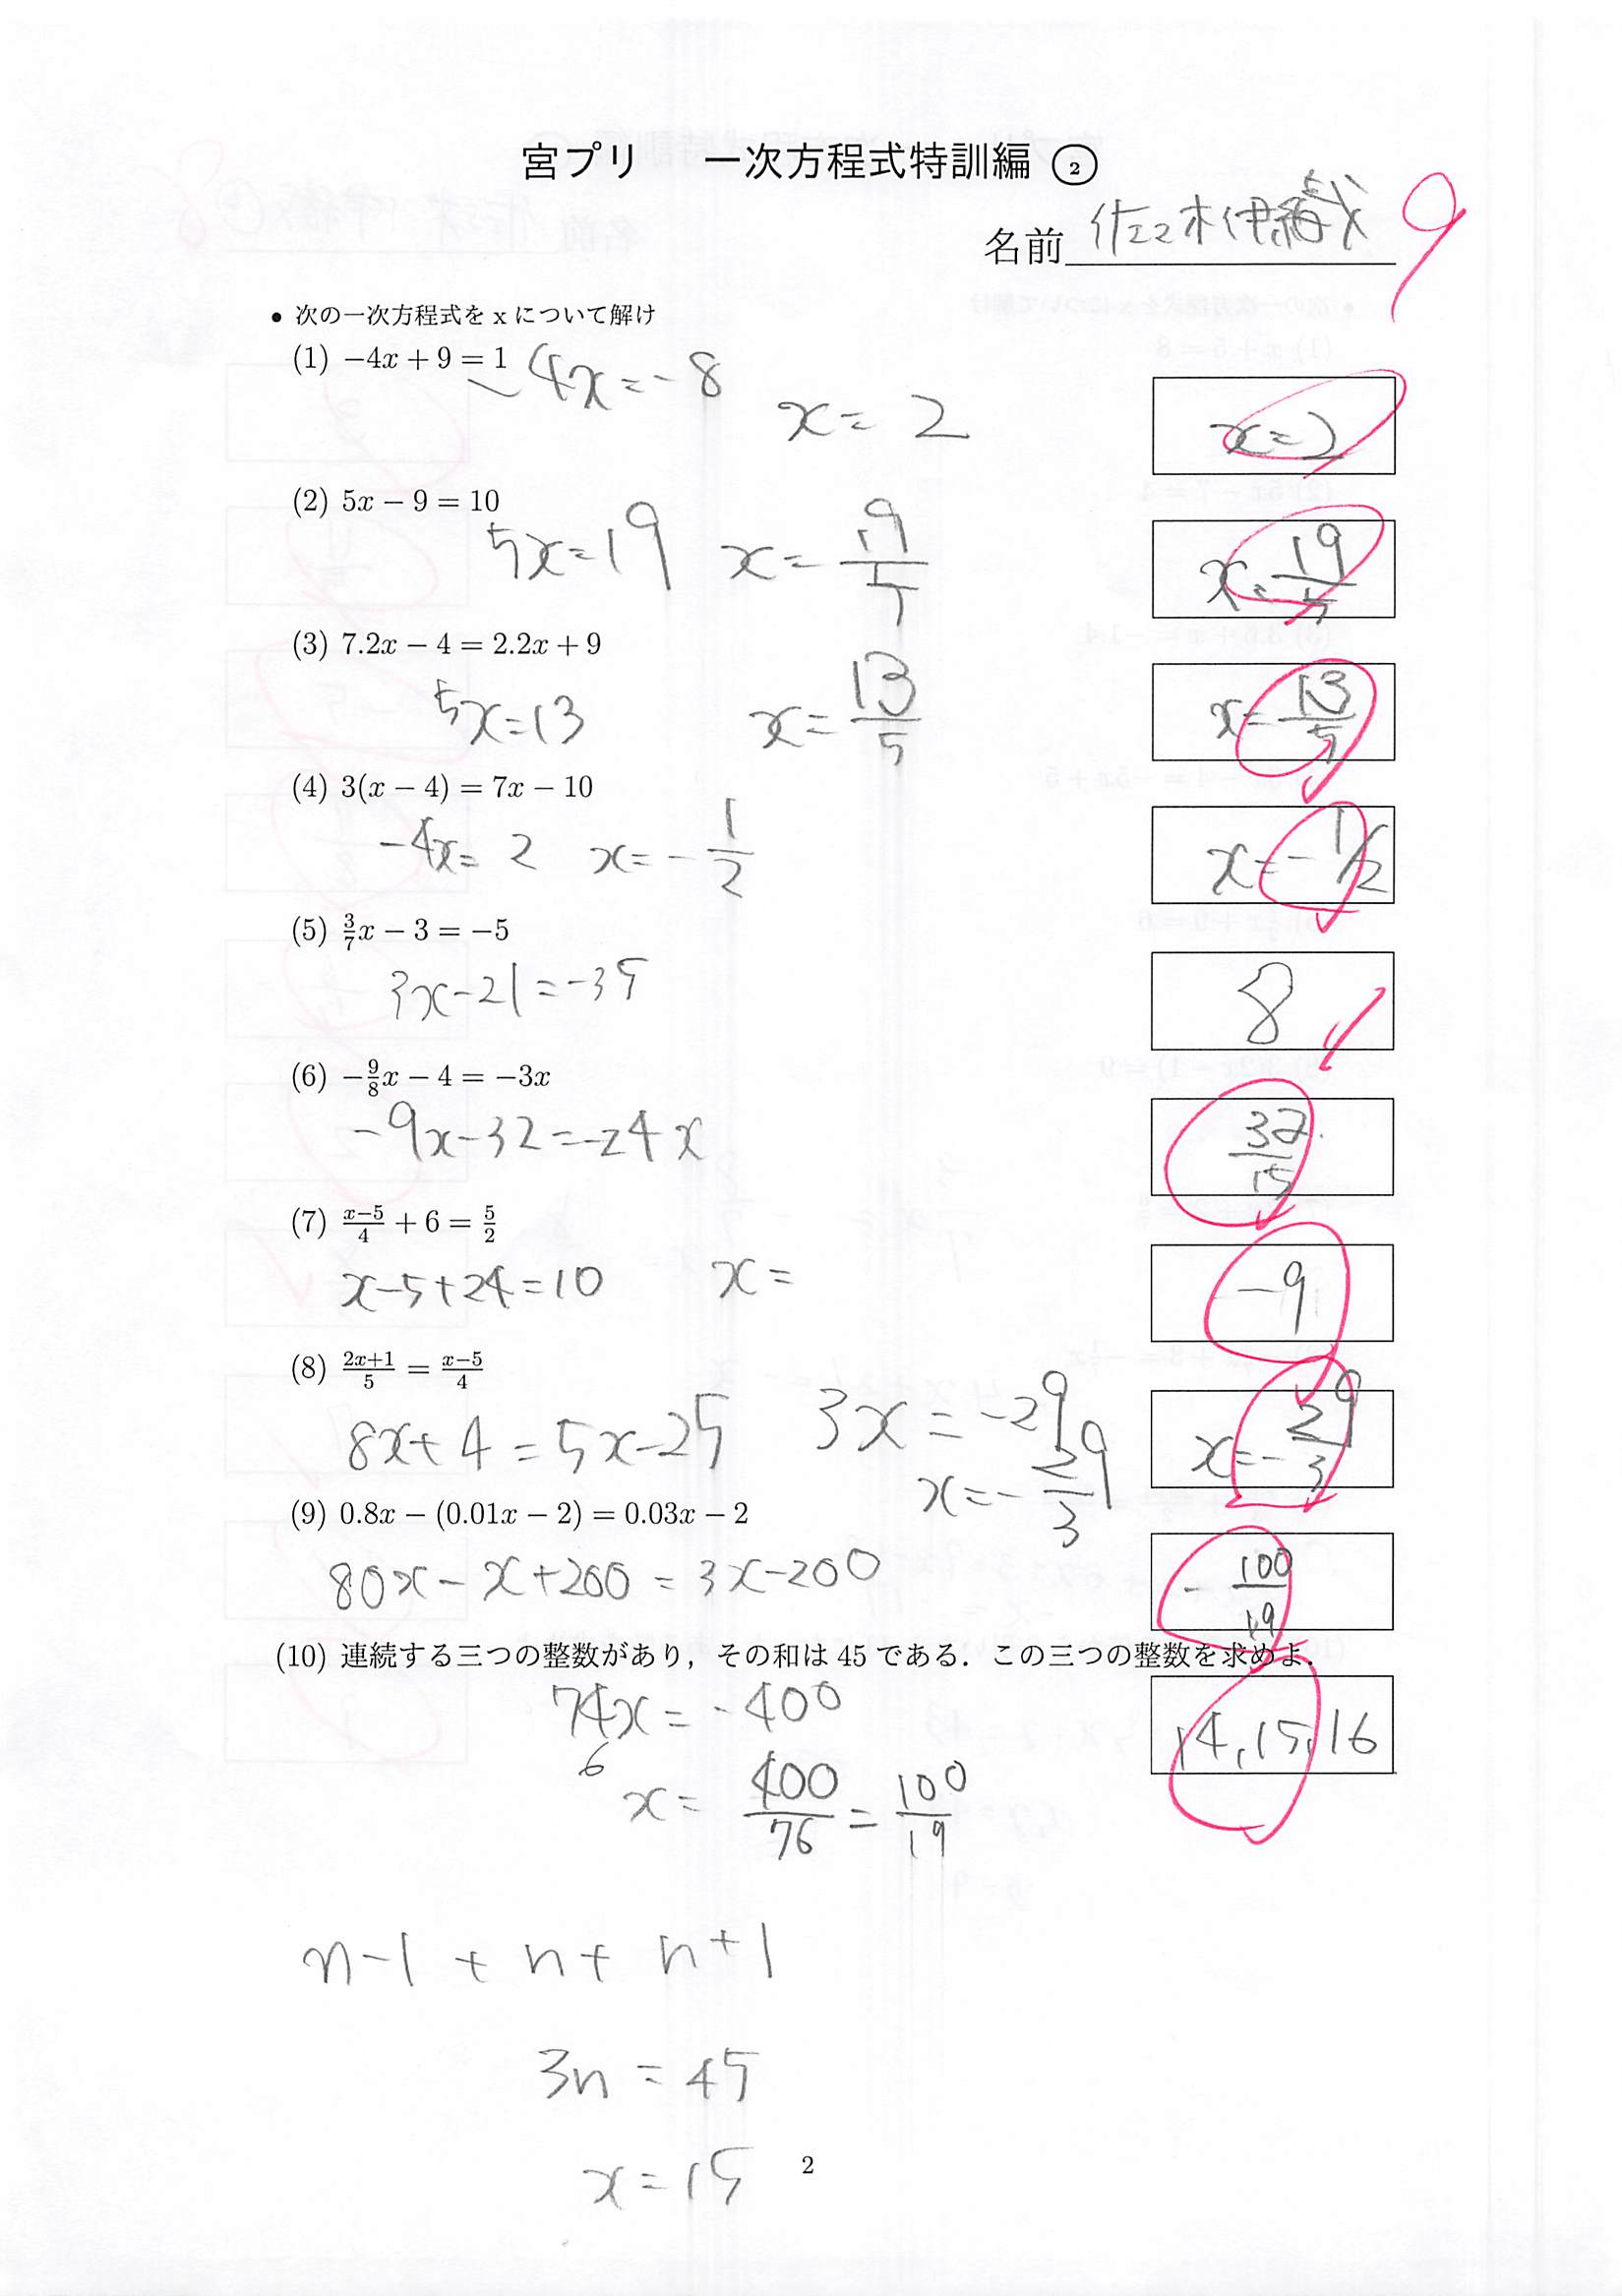 宮プリ 一次方程式特訓編 ②
名前 佐々木伊織 9
• 次の一次方程式を x について解け
(1) −4x + 9 = 1
-4x=-8
x=2
x=2
(2) 5x − 9 = 10
5x=19 x=19/5
x=19/5
(3) 7.2x − 4 = 2.2x + 9
5x=13 x=13/5
x=13/5
(4) 3(x − 4) = 7x − 10
-4x=2 x=-1/2
x=-1/2
(5) 3/7x − 3 = −5
3x-21=-35
8
(6) −9/8x − 4 = −3x
-9x-32=-24x
32/15
(7) x−5/4 + 6 = 5/2
x-5+24=10 x=
-9
(8) 2x+1/5 = x−5/4
8x+4=5x-25 3x=-29
x=-29/3
x=-29/3
(9) 0.8x − (0.01x − 2) = 0.03x − 2
80x-x+200=3x-200
-100/19
(10) 連続する三つの整数があり，その和は 45 である．この三つの整数を求めよ．
74x=-400
6
x=400/76=100/19
14,15,16
n-1+n+n+1
3n=45
x=15
2